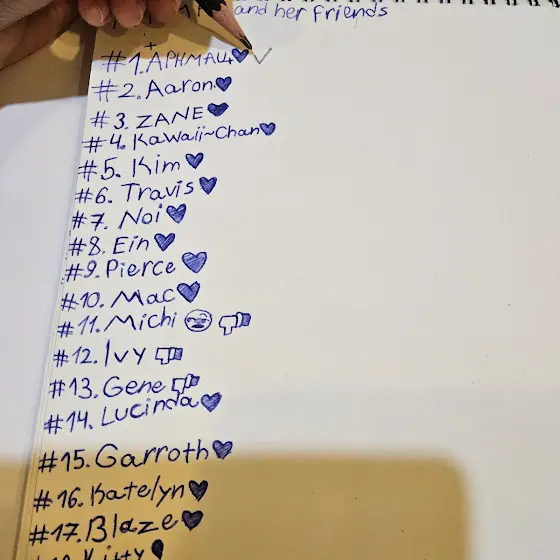 and her friends
#1. APHMAU
#2. Aaron
#3. ZANE
#4. Kawaii~Chan
#5. Kim
#6. Travis
#7. Noi
#8. Ein
#9. Pierce
#10. Mac
#11. Michi
#12. Ivy
#13. Gene
#14. Lucinda
#15. Garroth
#16. Katelyn
#17. Blaze
Kitty